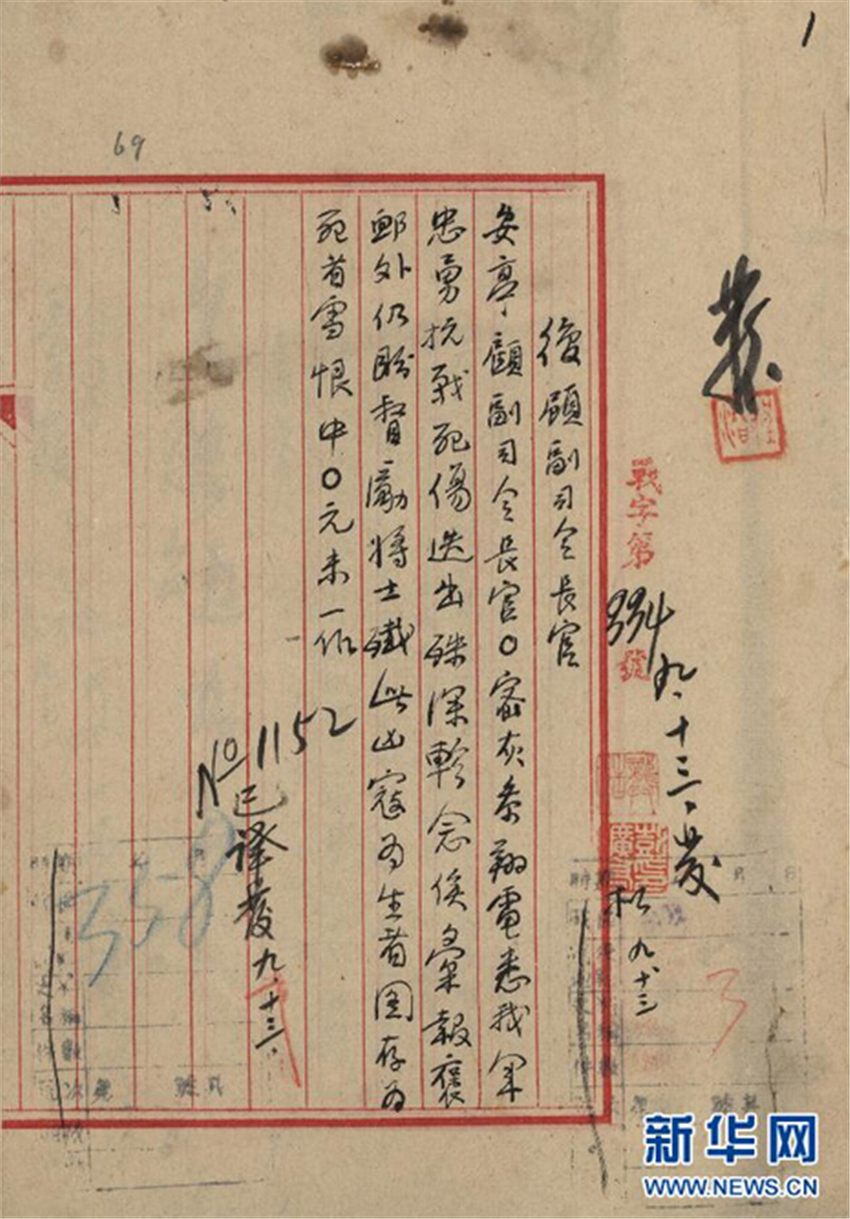 1
69
發
戰字第
334
號
九、十三、發
松 九、十三
復顧副司令長官
安亭顧副司令長官○密灰叅翔電悉我軍
忠勇抗戰死傷迭出殊深軫念俟彙報褒
卹外仍盼督勵將士殲此凶寇為生者圖存為
死者雪恨中○元未一作
No 1152
已譯發 九、十三、
358
3
新华网
WWW.NEWS.CN